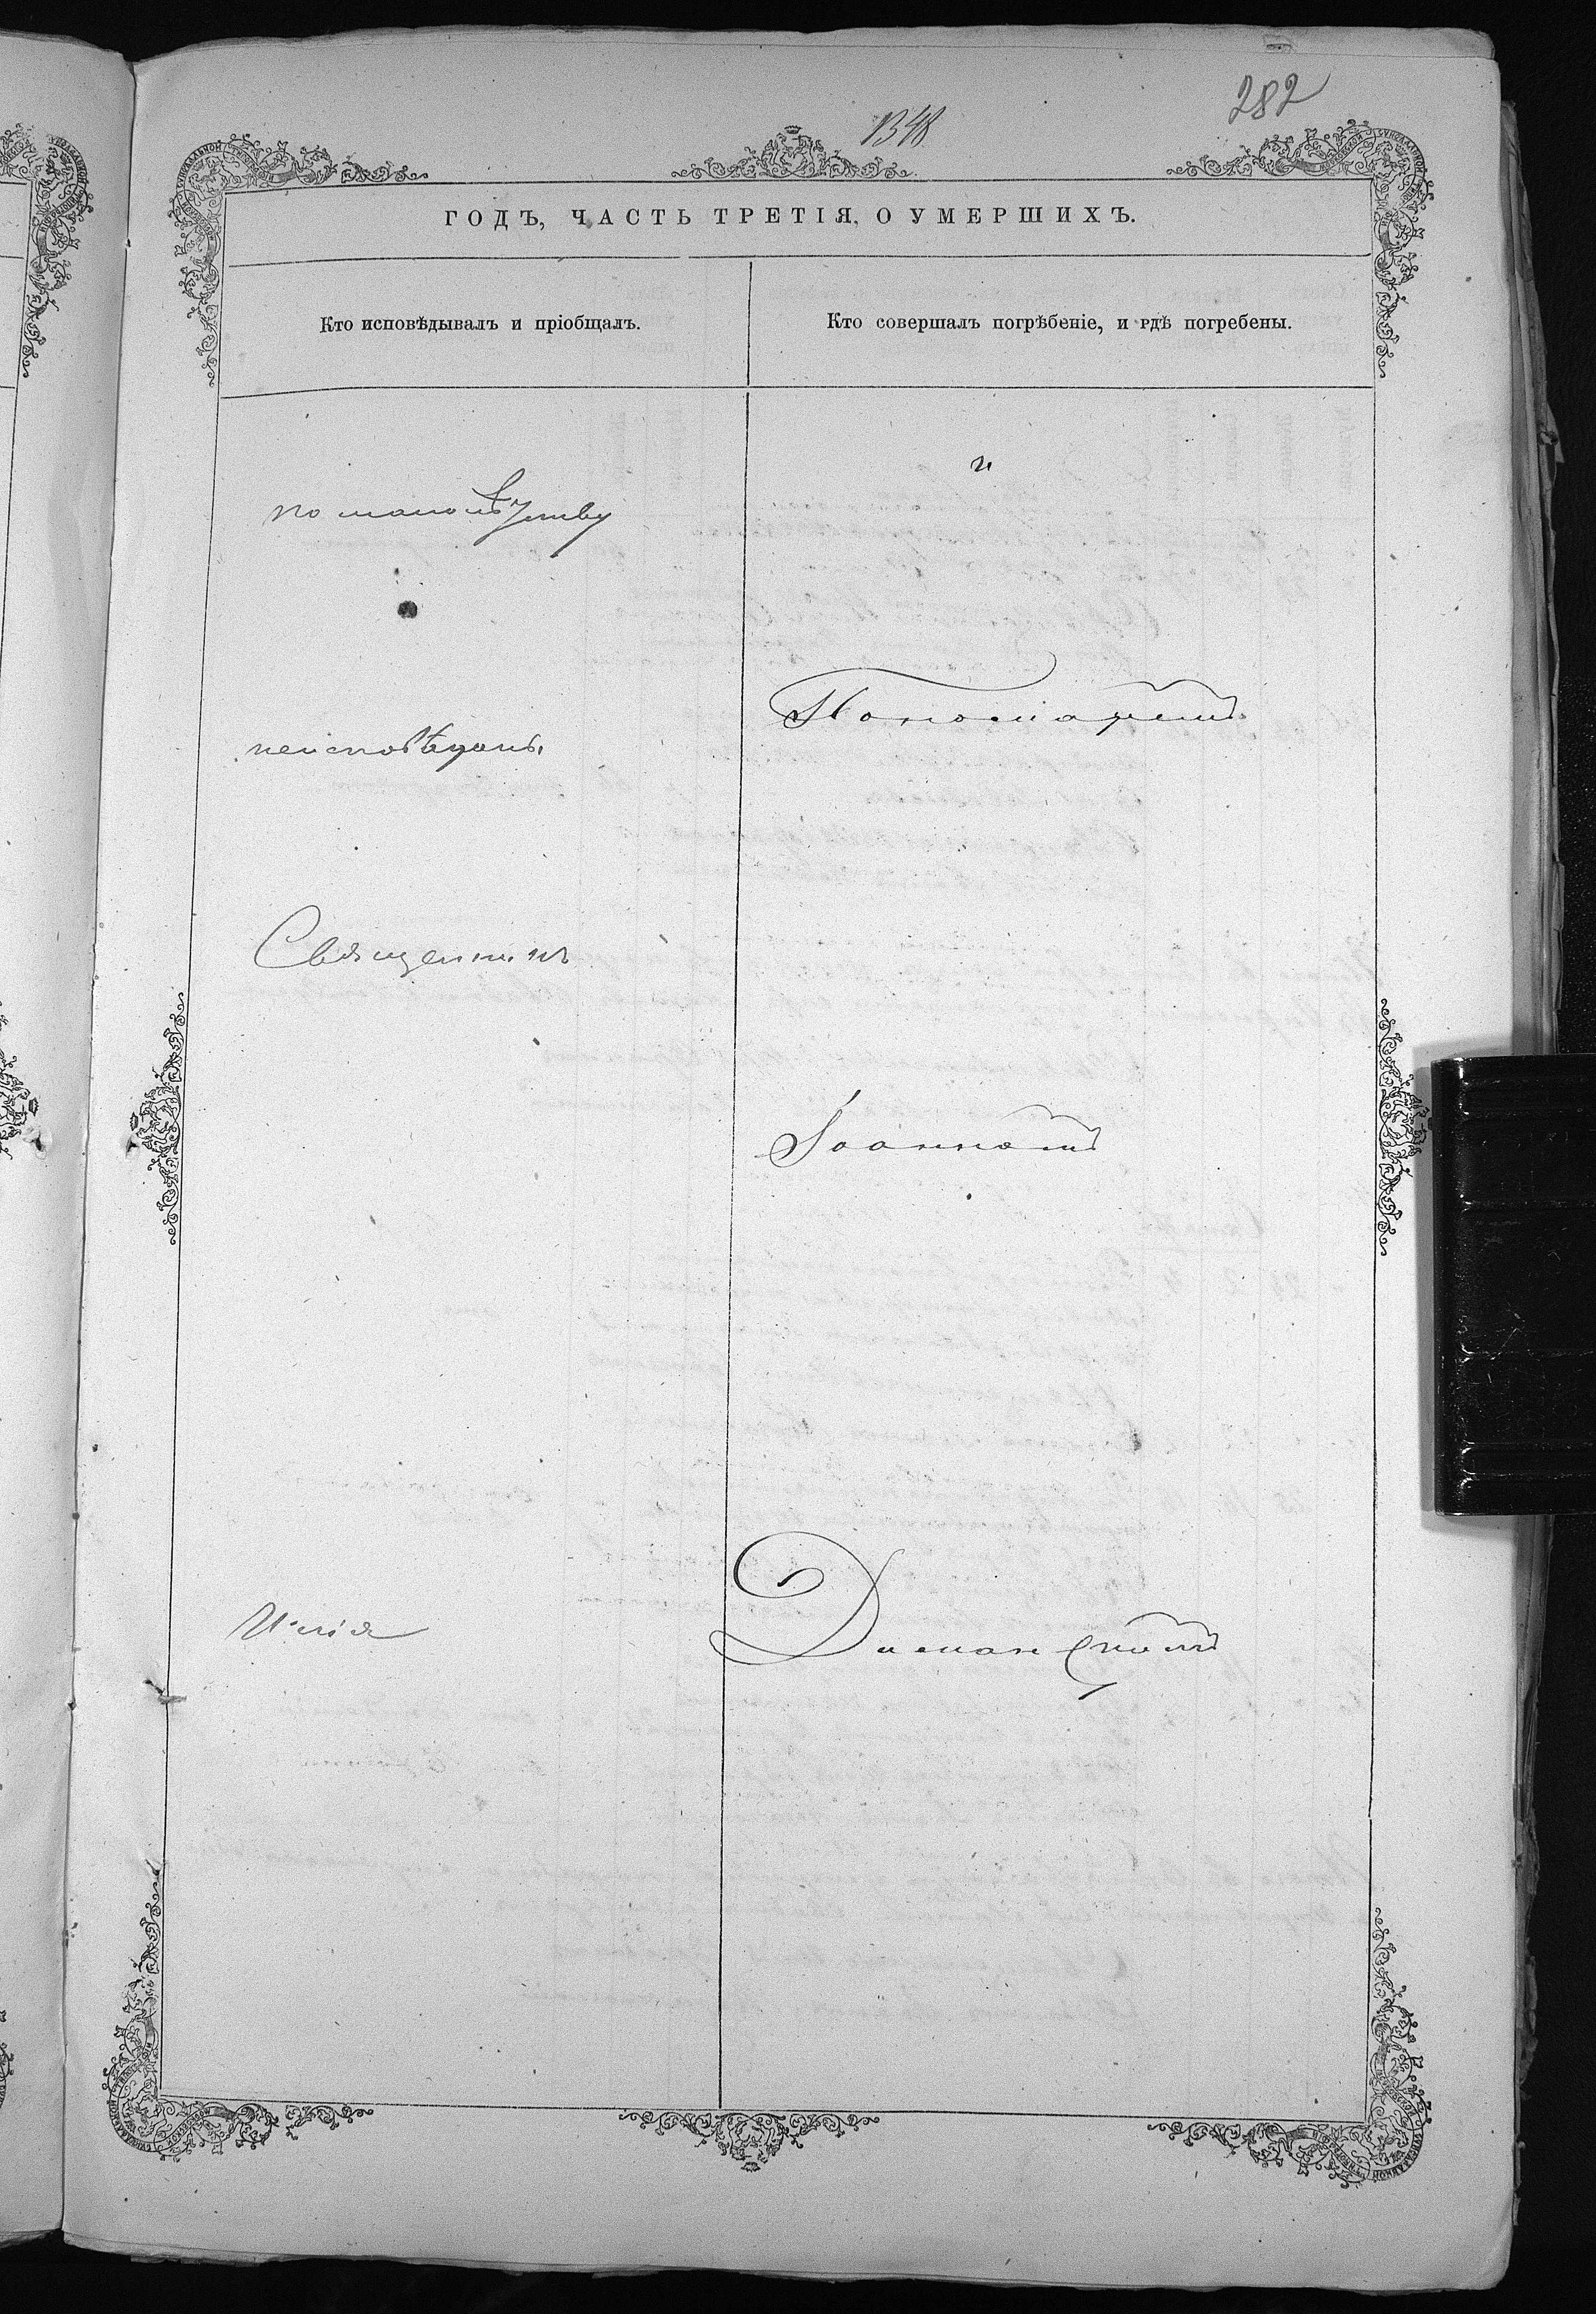 282
1348
ГОДЪ, ЧАСТЬ ТРЕТІЯ, О УМЕРШИХЪ.
Кто исповѣдывалъ и пріобщалъ.
Кто совершалъ погрѣбеніе, и гдѣ погребены.
и
по малолѣтству
Пономаремъ
неисповѣданъ
Священникъ
Іоанномъ
Илія